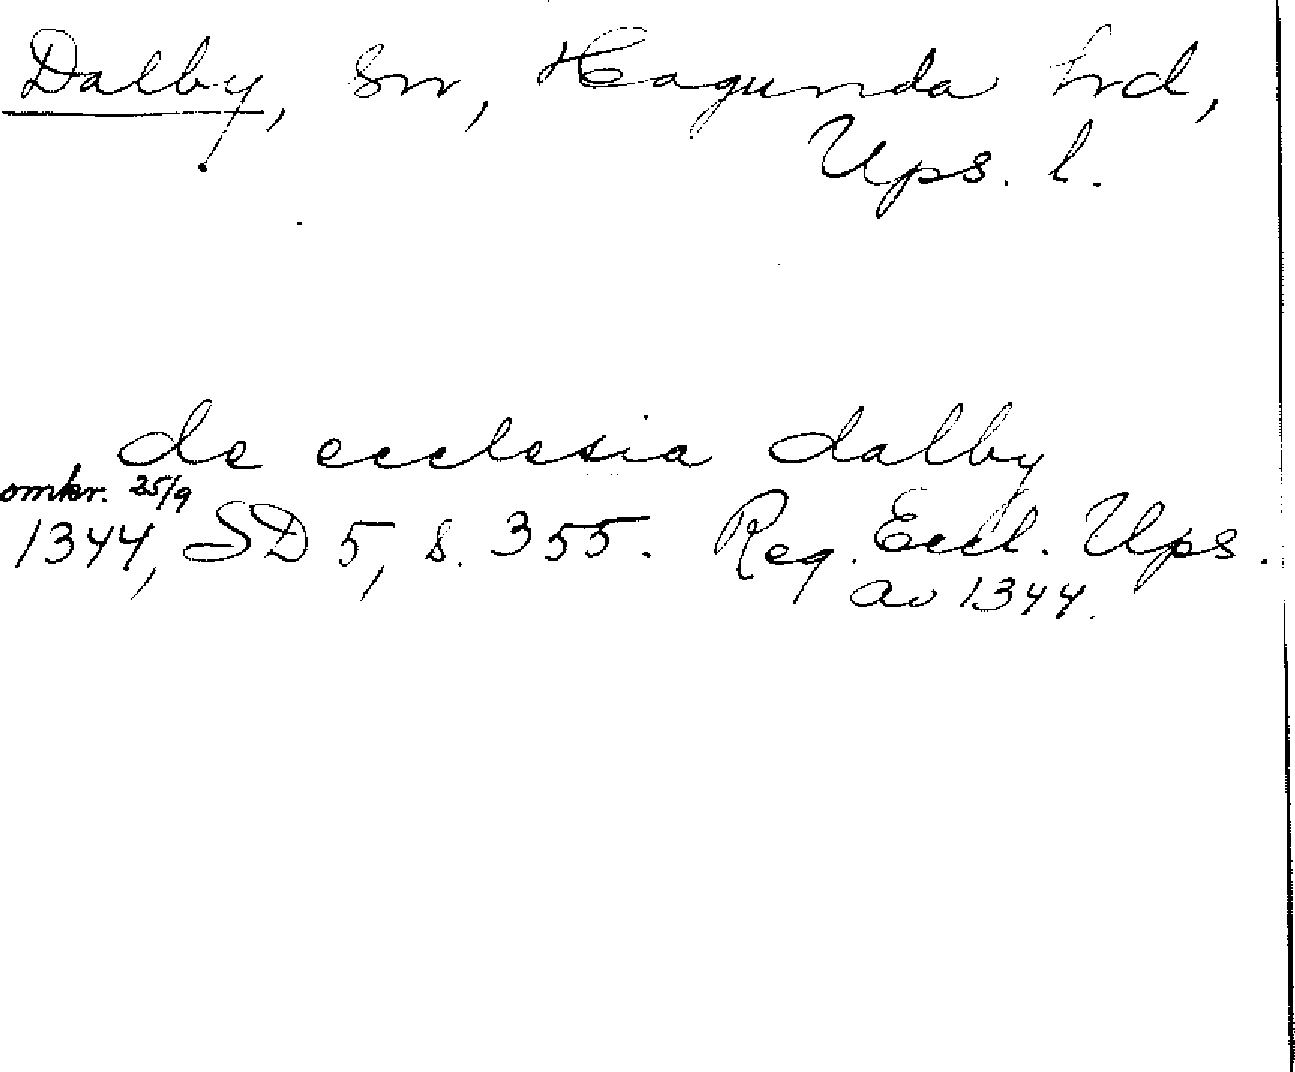 Dalby, sn, Hagunda hd,
Ups. l.
de ecclesia dalby
omkr. 25/9
1344, SD 5, s. 355. Reg. Eccl. Ups.
av 1344.